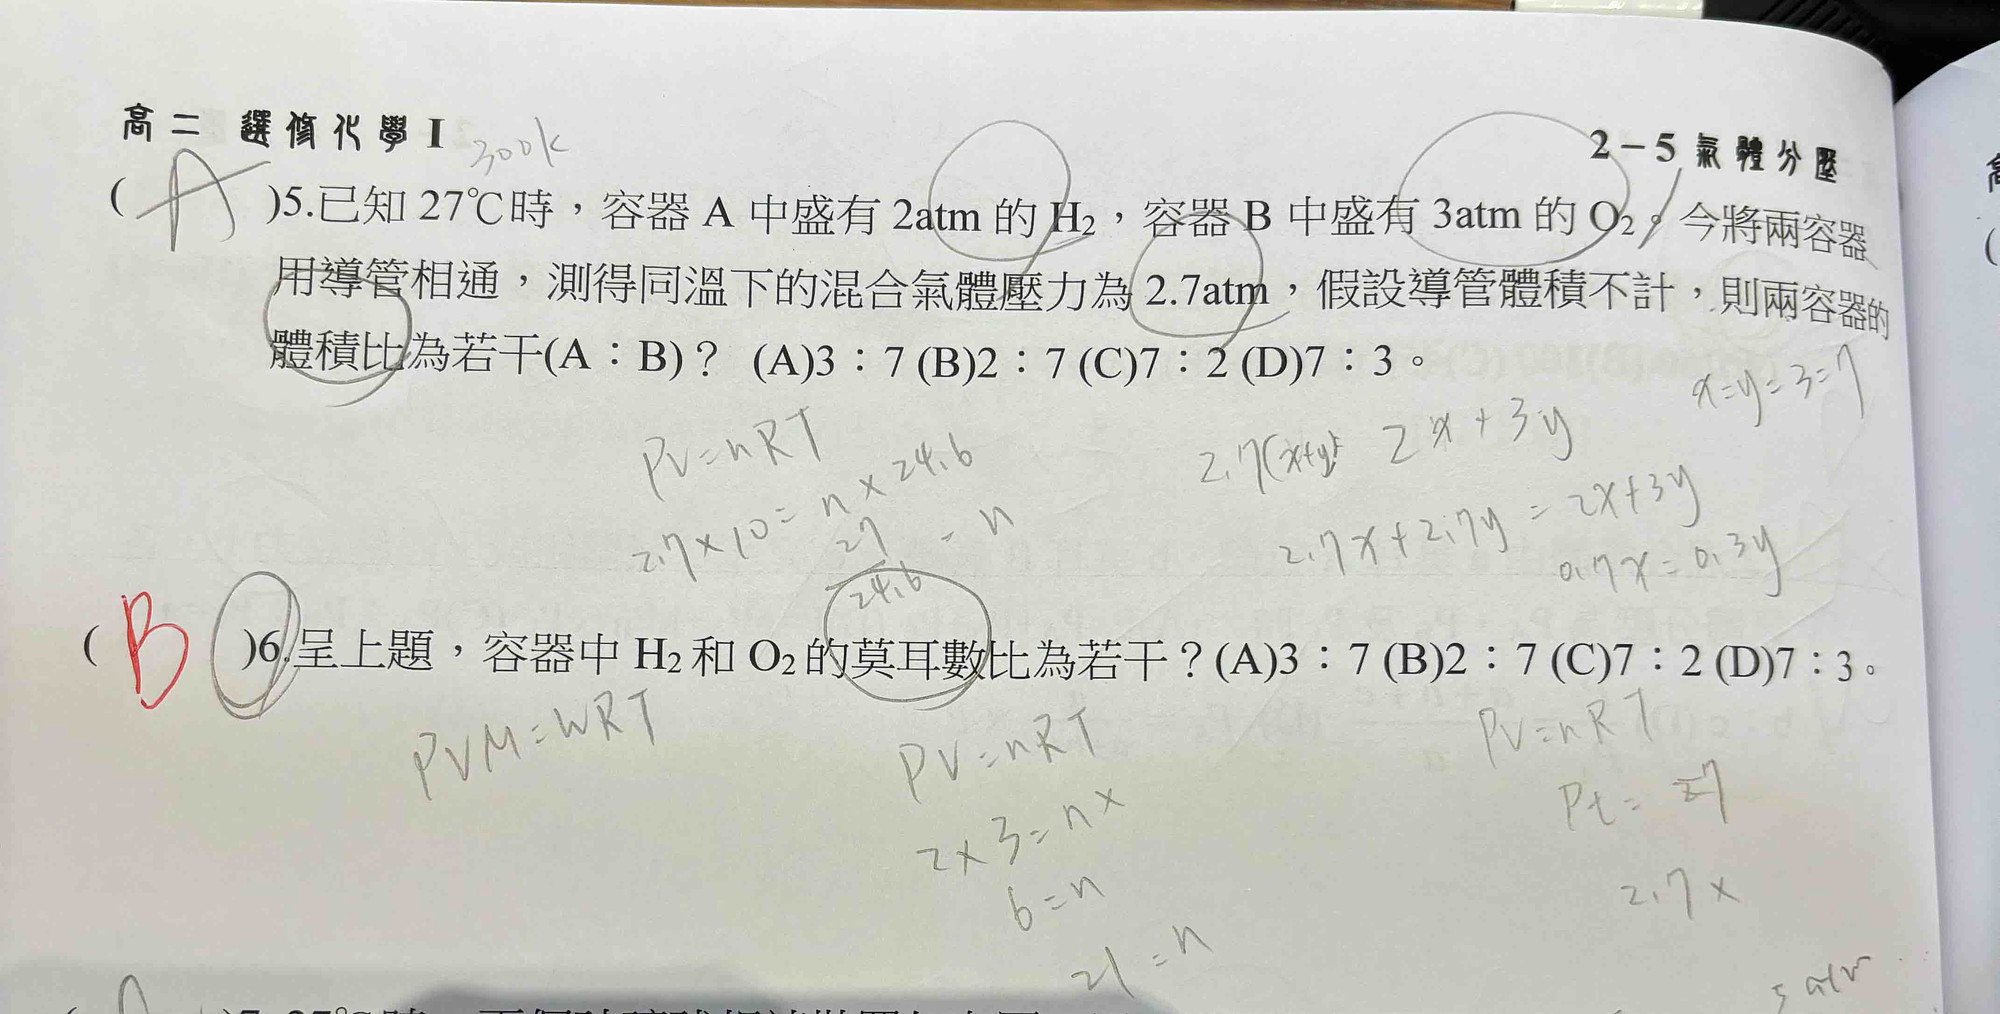 高二 選修化學 I
300k
2-5 氣體分壓
( A )5.已知 27℃時，容器 A 中盛有 2atm 的 H₂，容器 B 中盛有 3atm 的 O₂。今將兩容器
用導管相通，測得同溫下的混合氣體壓力為 2.7atm，假設導管體積不計，則兩容器的
體積比為若干(A：B)？ (A)3：7 (B)2：7 (C)7：2 (D)7：3。
x=y=3=7
PV=nRT
2.7(x+y)= 2x+3y
2.7×10=n×24.6
2.7x+2.7y=2x+3y
27/24.6=n
0.7x=0.3y
( B )6.呈上題，容器中 H₂和 O₂的莫耳數比為若干？(A)3：7 (B)2：7 (C)7：2 (D)7：3。
PVM=WRT
PV=nRT
PV=nRT
2×3=n×
Pt=
6=n
2.7×
21=n